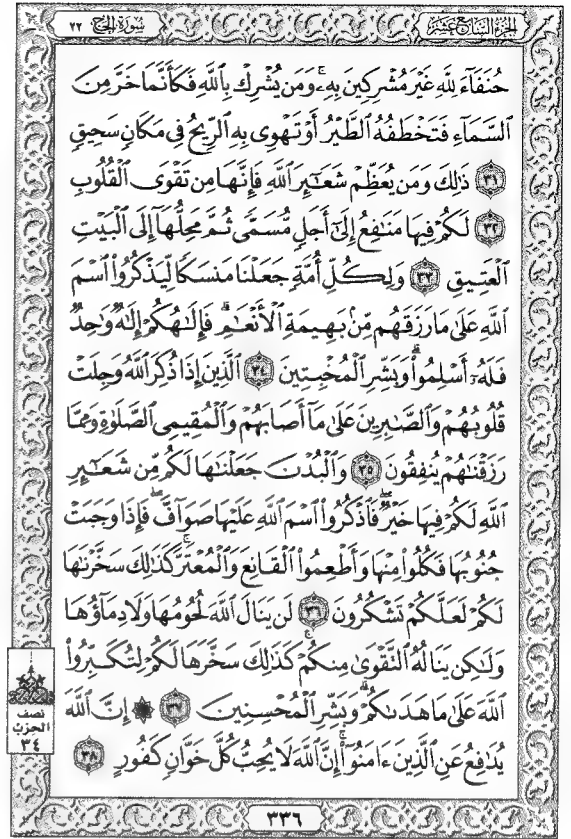 الجزء السابع عشر
سورة الحج ٢٢
حُنَفَآءَ لِلَّهِ غَيْرَ مُشْرِكِينَ بِهِۦۚ وَمَن يُشْرِكْ بِٱللَّهِ فَكَأَنَّمَا خَرَّ مِنَ
ٱلسَّمَآءِ فَتَخْطَفُهُ ٱلطَّيْرُ أَوْ تَهْوِى بِهِ ٱلرِّيحُ فِى مَكَانٍ سَحِيقٍ
٣١ ذَٰلِكَ وَمَن يُعَظِّمْ شَعَٰٓئِرَ ٱللَّهِ فَإِنَّهَا مِن تَقْوَى ٱلْقُلُوبِ
٣٢ لَكُمْ فِيهَا مَنَٰفِعُ إِلَىٰٓ أَجَلٍ مُّسَمًّى ثُمَّ مَحِلُّهَآ إِلَى ٱلْبَيْتِ
ٱلْعَتِيقِ ٣٣ وَلِكُلِّ أُمَّةٍ جَعَلْنَا مَنسَكًا لِّيَذْكُرُوا۟ ٱسْمَ
ٱللَّهِ عَلَىٰ مَا رَزَقَهُم مِّنۢ بَهِيمَةِ ٱلْأَنْعَٰمِۗ فَإِلَٰهُكُمْ إِلَٰهٌ وَٰحِدٌ
فَلَهُۥٓ أَسْلِمُوا۟ۗ وَبَشِّرِ ٱلْمُخْبِتِينَ ٣٤ ٱلَّذِينَ إِذَا ذُكِرَ ٱللَّهُ وَجِلَتْ
قُلُوبُهُمْ وَٱلصَّٰبِرِينَ عَلَىٰ مَآ أَصَابَهُمْ وَٱلْمُقِيمِى ٱلصَّلَوٰةِ وَمِمَّا
رَزَقْنَٰهُمْ يُنفِقُونَ ٣٥ وَٱلْبُدْنَ جَعَلْنَٰهَا لَكُم مِّن شَعَٰٓئِرِ
ٱللَّهِ لَكُمْ فِيهَا خَيْرٌۖ فَٱذْكُرُوا۟ ٱسْمَ ٱللَّهِ عَلَيْهَا صَوَآفَّۖ فَإِذَا وَجَبَتْ
جُنُوبُهَا فَكُلُوا۟ مِنْهَا وَأَطْعِمُوا۟ ٱلْقَانِعَ وَٱلْمُعْتَرَّۚ كَذَٰلِكَ سَخَّرْنَٰهَا
لَكُمْ لَعَلَّكُمْ تَشْكُرُونَ ٣٦ لَن يَنَالَ ٱللَّهَ لُحُومُهَا وَلَا دِمَآؤُهَا
وَلَٰكِن يَنَالُهُ ٱلتَّقْوَىٰ مِنكُمْۚ كَذَٰلِكَ سَخَّرَهَا لَكُمْ لِتُكَبِّرُوا۟
ٱللَّهَ عَلَىٰ مَا هَدَىٰكُمْۗ وَبَشِّرِ ٱلْمُحْسِنِينَ ٣٧ ۞ إِنَّ ٱللَّهَ
يُدَٰفِعُ عَنِ ٱلَّذِينَ ءَامَنُوٓا۟ۗ إِنَّ ٱللَّهَ لَا يُحِبُّ كُلَّ خَوَّانٍ كَفُورٍ ٣٨
نصف
الحزب
٣٤
٣٣٦